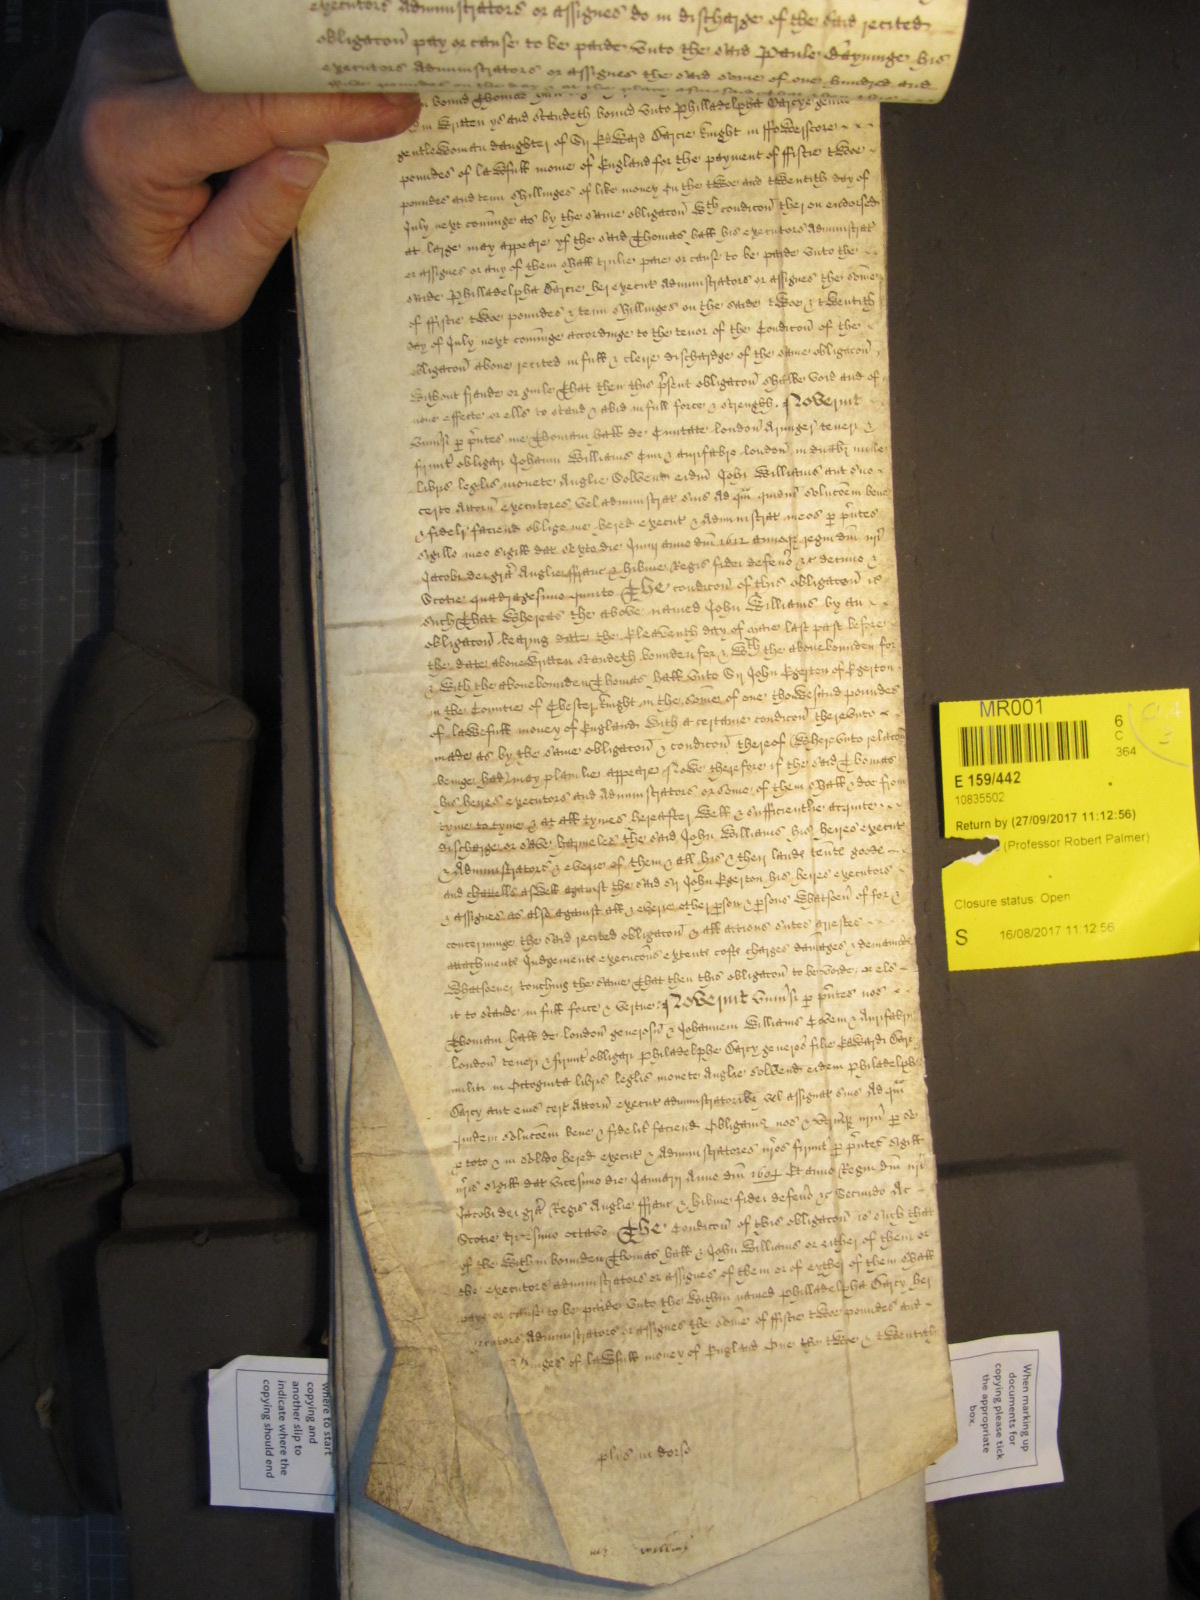 executors administrators or assignes do in discharge of the said recited
obligacon pay or cause to be paide vnto the said Paule Bayninge his
executors administrators or assignes the said some of one hundred and
bound Thomas
written ys and standeth bound vnto Philladelpha Carye
gentlewoman daughter of Sir Edward Carie knight in ffowerscore
poundes of lawfull monie of England for the payment of ffiftie twoe
poundes and tenn shillinges of like money on the twoe and twentith day of
July next cominge as by the same obligacon wth condicon theron endorsed
at large may appeare yf the said Thomas hall his executors administrat
or assignes or any of them shall trulie paie or cause to be paide vnto the
saide Philladelpha Carie her execut administrators or assignes the some
of ffiftie twoe poundes & tenn shillinges on the saide twoe & twentith
day of July next cominge accordinge to the tenor of the Condicon of the
obligacon aboue recited in full & cleere dischardge of the same obligacon
without fraude or guile That then this pesent obligacon shalbe void and of
none effecte or ells to stand & abid in full force & strength. Noverint
vniusi p pntes me Thomam hall de Ciuitate london Armiger teneri &
firmit obligari Johanni Williams Ciui & aurifabro london in ducent mille
libris leglis monete Anglie Solvend eidem Johi Williams aut suo
certo Attorn executores vel administrat suis Ad quam quidem solucoem bene
& fidelit faciend obligo me hered execut & Administrat meos p pntes
sigillo meo sigill dat sexto die Junii anno dni 1612 annoque regni dni nri
Jacobi dei gra Anglie ffranc & hibnie Regis fidei defens &c decimo &
Scotie quadragesimo quinto The condicon of this obligacon is
such That whereas the aboue named John Williams by an
obligacon bearing date the Eleaventh day of maie last past before
the date abovewritten standeth bounden for & wth the abovebounden for
& with the abovebounden Thomas hall vnto Sir John Egerton of Egerton
in the Countie of Chester knight in the some of one thowsand poundes
of lawefull money of England with a certaine condicon therevnto
made as by the same obligacon & condicon thereof (wherevnto relacon
beinge had) may plainlie appeare Nowe therefore if the said Thomas
his heires executors and administrators or some of them shall & doe from
tyme to tyme & at all tymes hereafter well & sufficientlie acquite
discharge or save harmeles the said John Williams his heires execut
& Administrators & everie of them & all his & their lande tente goode
and chattells aswell against the said sir John Egerton his heires executors
& assignes as also against all & everie other pson & psons whatsoeu of for &
concerninge the said recited obligacon & all actions suites arrestes
attachments Judgements execucons extents costs charges damages & demands
whatsoeuer touching the same That then this obligacon to be voide or els
it to stande in full force & vertue. Noverint vniusi p pntes nos
Thomam hall de london generosu & Johannem Williams Civem & Aurifabru
london teneri & firmit obligari Philadelphe Carcy generos filie Edwardi Care
militi in Octoginta libris leglis monete Anglie solvend eidem Philadelphe
Carcy aut eius cert attorn execut administratoribz vel assignat suis Ad quam
quidem solucoem bene & fidelit faciend Obligamus nos & vtrumque nrm p se
p toto & in solido hered execut & administratores nros firmit p pntes sigill
nris sigill dat vicesimo die Januarii Anno dni 1604 Et anno Regni dni nri
Jacobi dei gra Regis Anglie ffranc & hibnie fidei defens &c Secundo Ac
Scotie tricesimo octavo The Condicon of this obligacon is such that
if the within bounden Thomas hall & John Williams or either of them or
the executors administrators or assignes of them or of eyther of them shall
paye or cause to be paide vnto the within named Philladelpha Carcy her
administrators or assignes the some of ffiftie twoe poundes and
of lawfull money of England One the twoe & twentith
plus in dorso
Williams
MR001
6
C
364
E 159/442
10835502
Return by (27/09/2017 11:12:56)
(Professor Robert Palmer)
Closure status Open
S 16/08/2017 11:12:56
where to start
copying and
another slip to
indicate where the
copying should end
When marking up
documents for
copying please tick
the appropriate
box.